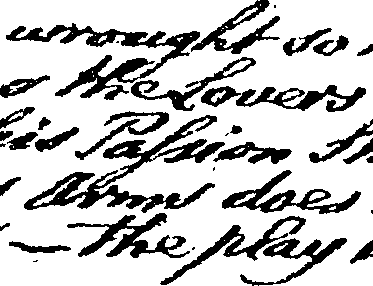 wrought so
the Lovers
his Passion
Arms does
— the play